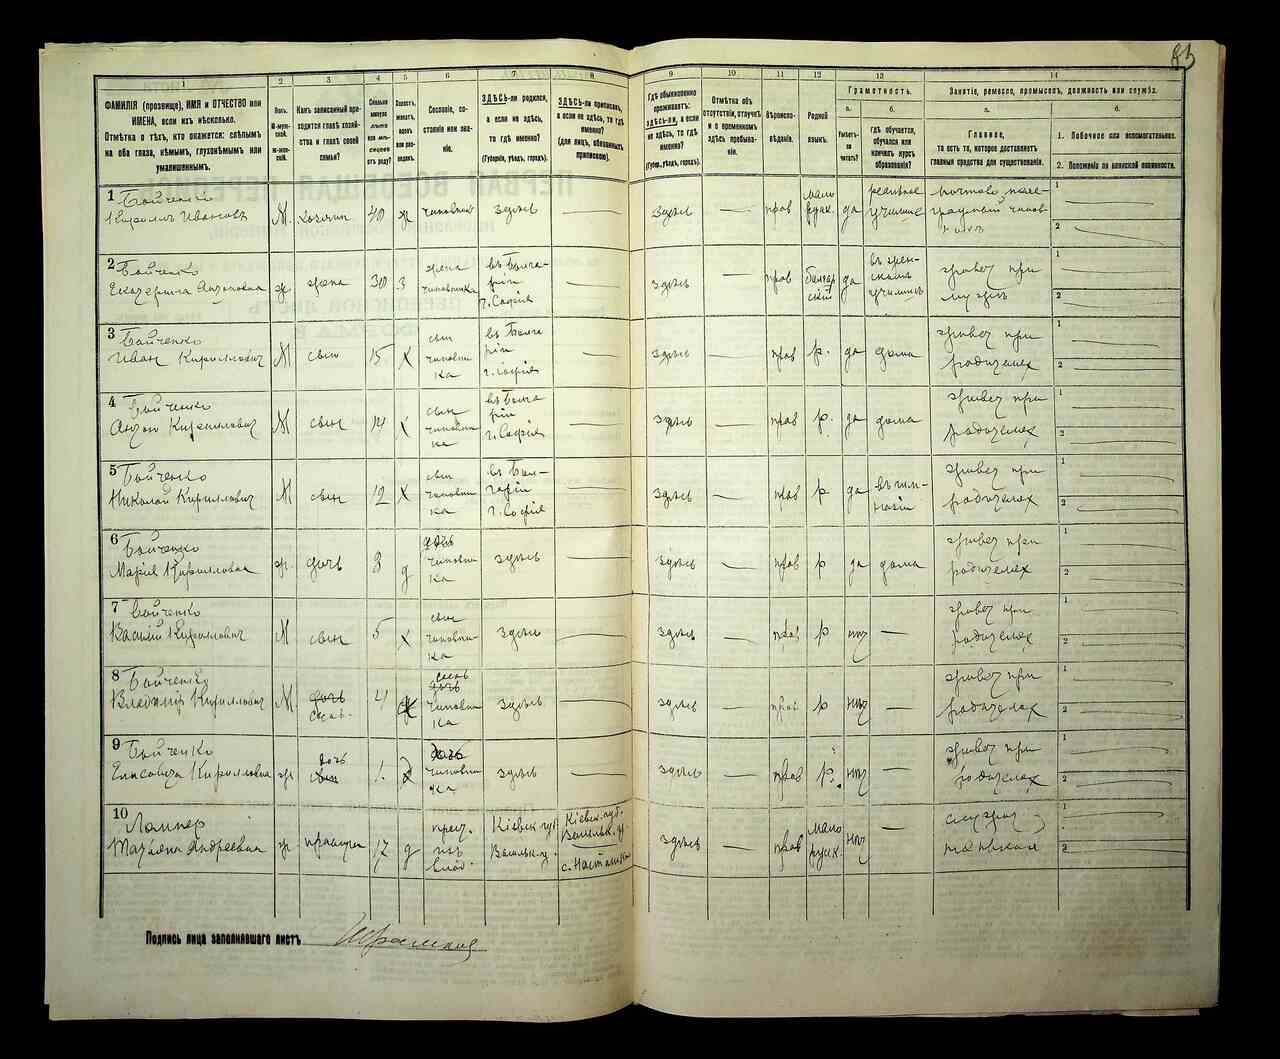 83
1
2
3
4
5
6
7
8
9
10
11
12
13
14
ФАМИЛІЯ (прозвище), ИМЯ и ОТЧЕСТВО или
ИМЕНА, если ихъ нѣсколько.
Отмѣтка о тѣхъ, кто окажется: слѣпымъ
на оба глаза, нѣмымъ, глухонѣмымъ или
умалишеннымъ.
Полъ.
М-муж-
ской.
Ж-жен-
ской.
Какъ записанный при-
ходится главѣ хозяй-
ства и главѣ своей
семьи?
Сколько
минуло
лѣтъ
или мѣ-
сяцевъ
отъ роду?
Сословіе, со-
стояніе или зва-
ніе.
ЗДѢСЬ-ли родился,
а если не здѣсь,
то гдѣ именно?
(Губернія, уѣздъ, городъ).
ЗДѢСЬ-ли приписанъ,
а если не здѣсь, то гдѣ
именно?
(для лицъ, обязанныхъ
припискою).
Гдѣ обыкновенно
проживаетъ:
здѣсь-ли, а если
не здѣсь, то гдѣ
именно?
(Губерн., уѣздъ, городъ).
Отмѣтка объ
отсутствіи, отлучкѣ
и о временномъ
здѣсь пребыва-
ніи.
Вѣроиспо-
вѣданіе.
Родной
языкъ.
Грамотность.
а.
б.
Умѣетъ-
ли
читать?
гдѣ обучается,
обучался или
кончилъ курсъ
образованія?
Занятіе, ремесло, промыселъ, должность или служба.
а.
б.
Главное,
то есть то, которое доставляетъ
главныя средства для существованія.
1. Побочное или вспомогательное.
2. Положеніе по воинской повинности.
1 Бойченко
Кириллъ Ивановъ М. хозяин 40 ж чиновник здѣсь — здѣсь — прав мало русск. да реальное училище почтово теле-
графный чинов-
никъ
2 Бойченко
Екатерина Антоновна ж жена 30 З жена чиновника въ Болга-
ріи
г. Софія здѣсь — прав болгар
скій да въ жен-
скомъ
училищѣ живет при
мужѣ
3 Бойченко
Иван Кириллович М сын 15 Х сын чиновни
ка въ Болга
ріи
г. Софія — здѣсь — прав р. да дома живет при
родителях
4 Бойченко
Антон Кириллович М сын 14 Х сын чиновни
ка въ Болга
ріи
г. Софія — здѣсь — прав р. да дома живет при
родителях
5 Бойченко
Николай Кириллович М сын 12 Х сын чиновни
ка въ Бол-
гаріи
г. Софія — здѣсь — прав р да въ гим-
назіи живет при
родителях
6 Бойченко
Марія Кирилловна ж. дочь 8 д дочь чиновни
ка здѣсь — здѣсь — прав р да дома живет при
родителях
7 Бойченко
Василій Кириллович М. сын 5 Х сын чиновни-
ка здѣсь — здѣсь — прав р нѣт — живет при
родителях
8 Бойченко
Владимір Кириллович М. дочь сынъ. 4 сынъ дочь чиновни
ка здѣсь — здѣсь — прав р нѣт — живет при
родителях
9 Бойченко
Елисавета Кирилловна ж дочь сын 1. дочь чиновни
ка здѣсь — здѣсь — прав р. нѣт — живет при
родителях
10
Татьяна Андреевна ж прислуга 17 д Кіевск. губ.
Васильк. у. Кіевск. губ.
Васильк. у.
с. здѣсь — прав мало
русск. нѣт —
Подпись лица заполнявшаго листъ